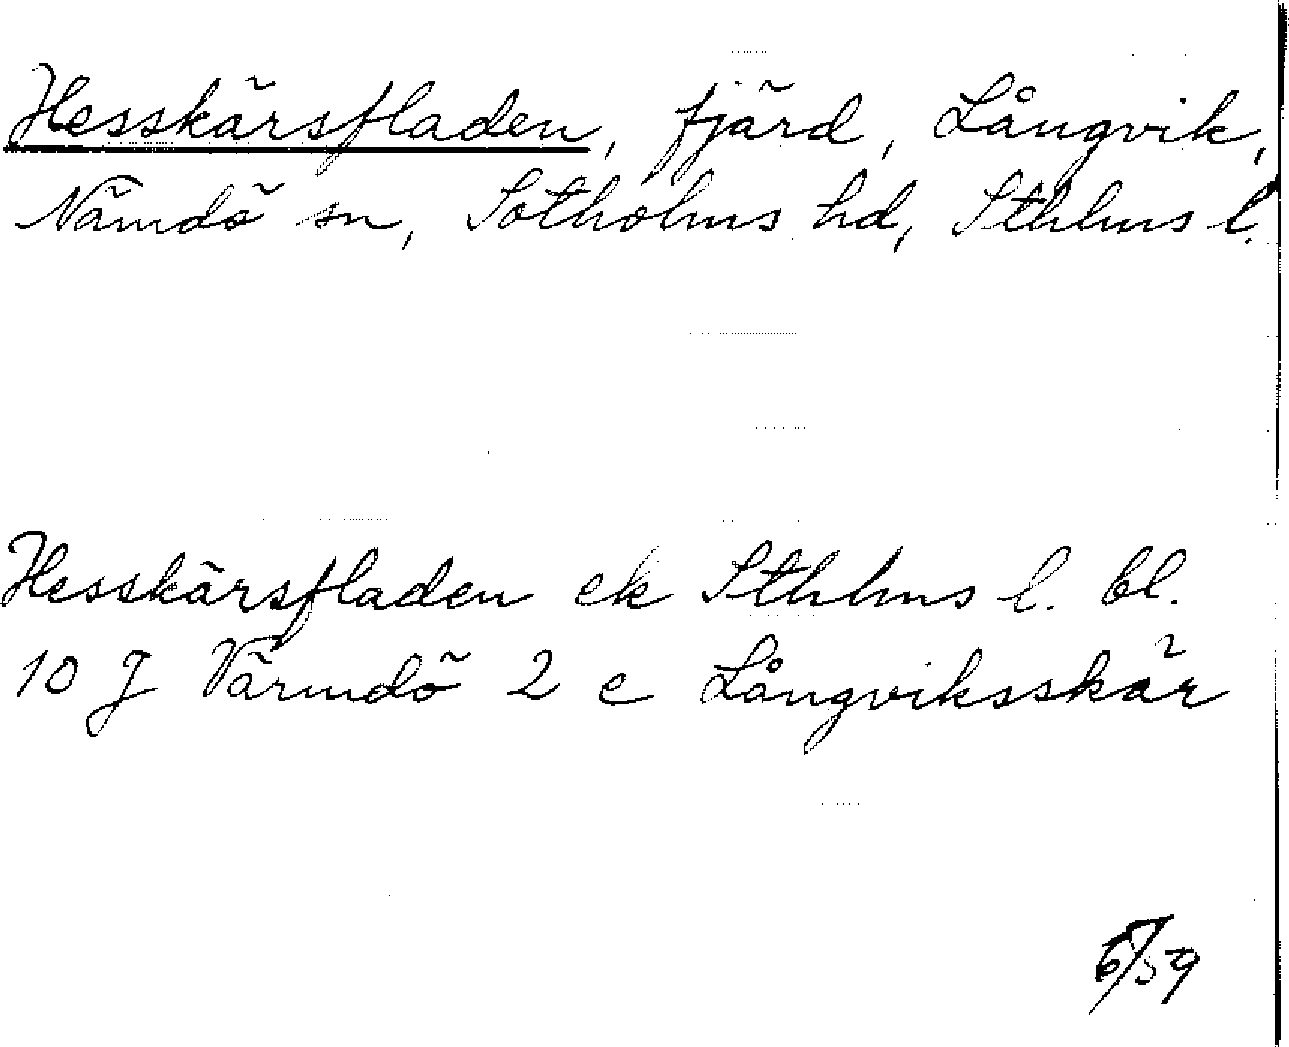 Hesskärsfladen, fjärd, Långvik,
Nämdö sn, Sotholms hd, Sthlms l.
Hesskärsfladen ek Sthlms l. bl.
10 J Värmdö 2 c Långviksskär